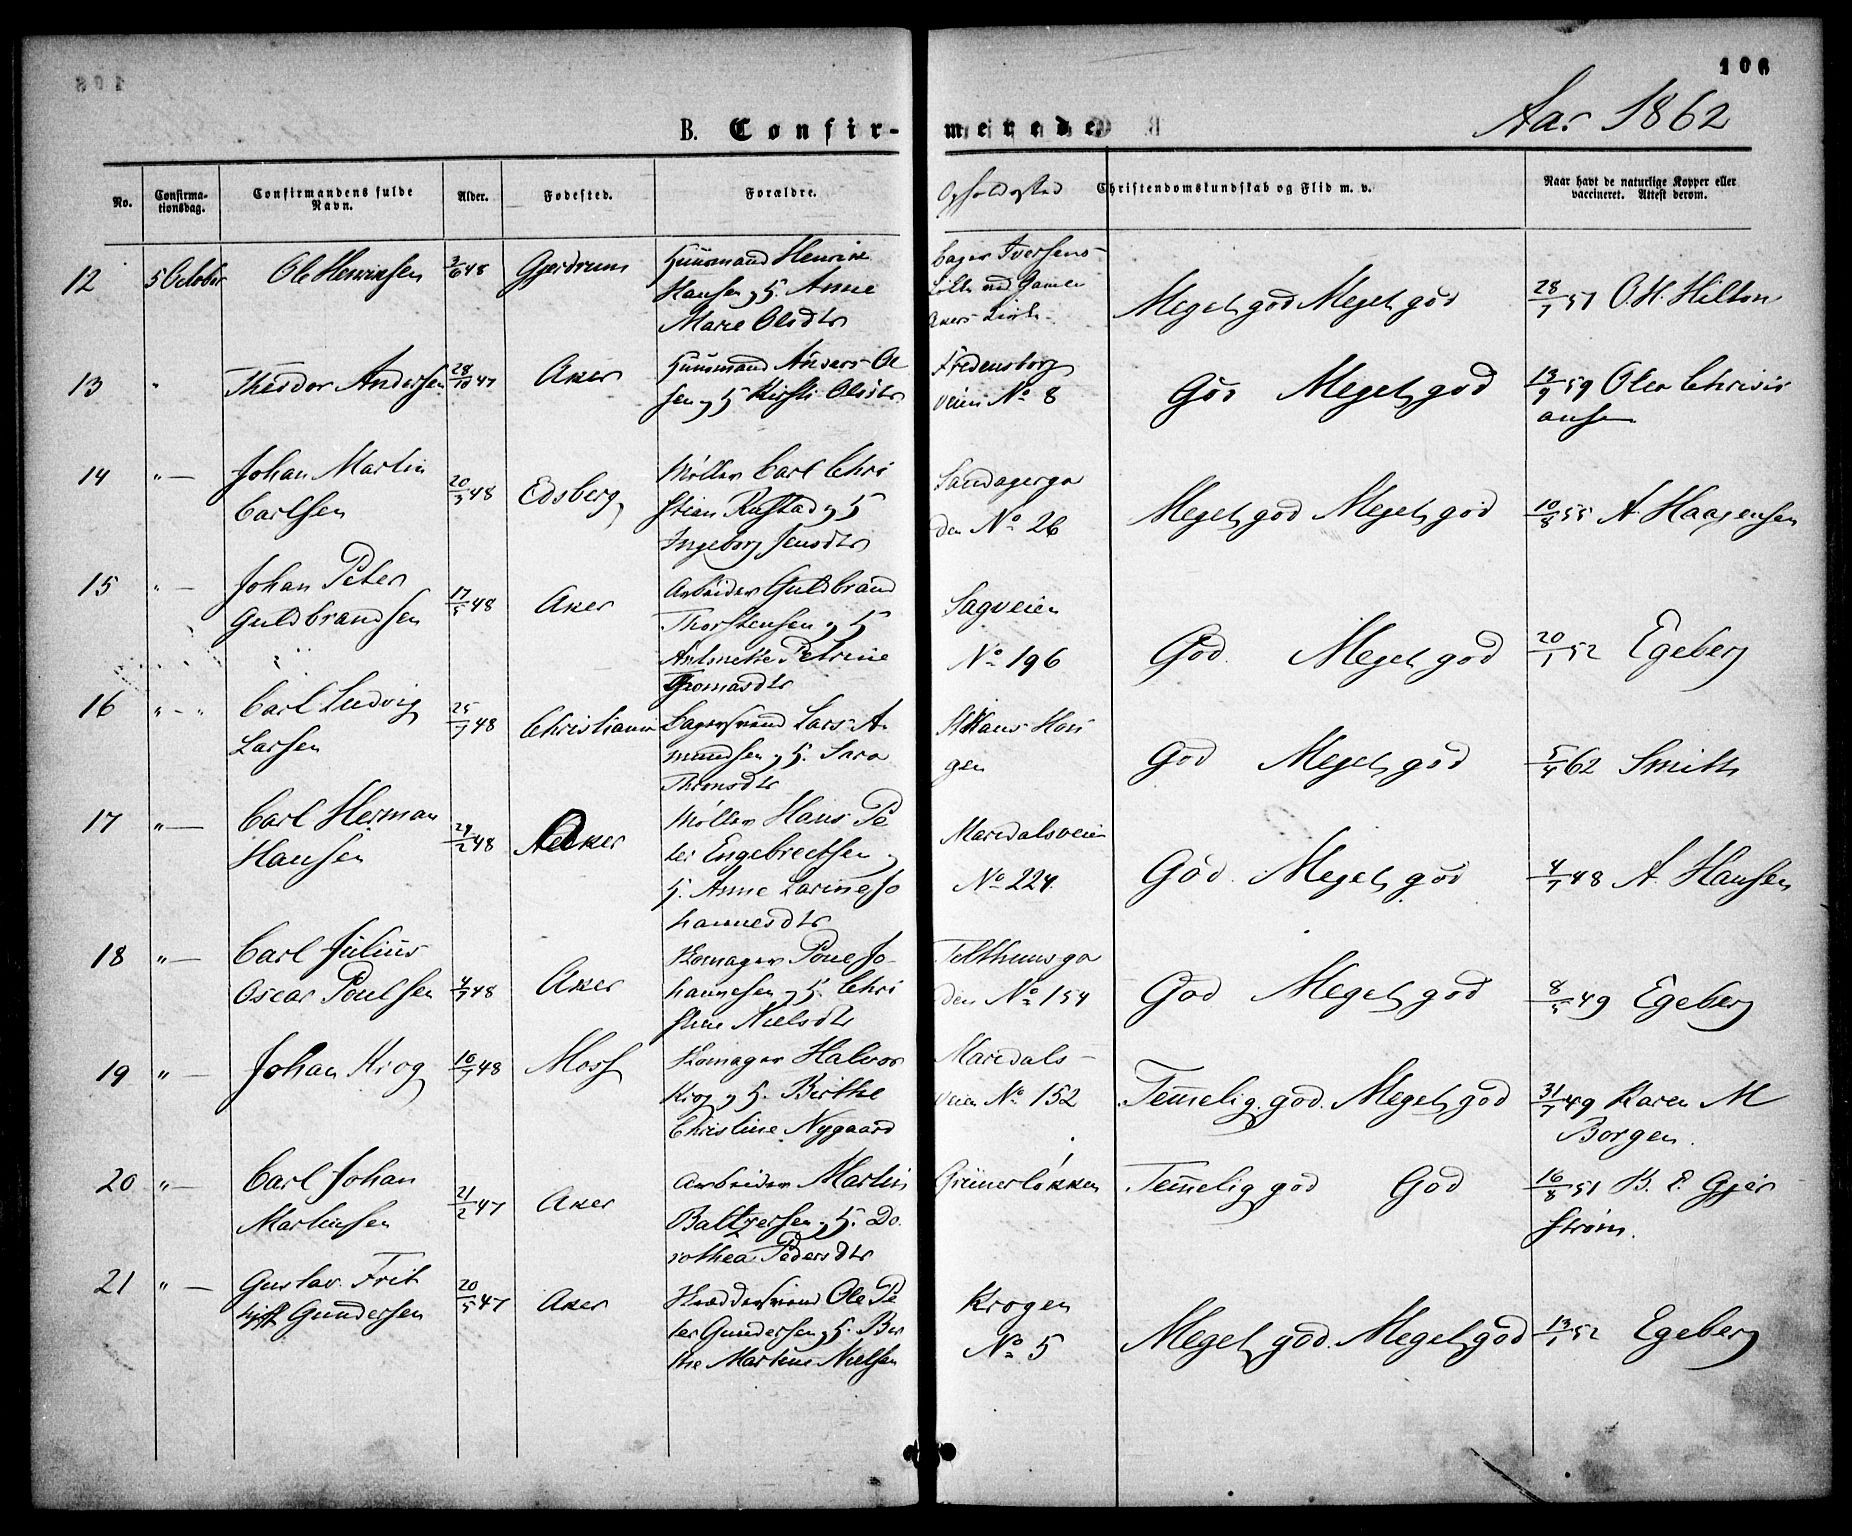 106
Aar 1862
B. Confirmerede
No. Confirmationsdag. Confirmandens fulde Navn. Alder. Fødested. Forældre. Opholdssted Christendomskundskab og Flid m. v. Naar havt de naturlige Kopper eller vaccineret. Attest derom.
12 5 October Ole Henriksen 3/6 48 Gjerdrum Huusmand Henrik
Hansen og H. Anne
Marie Olsdtr
Bager Iversens
Løkke ved Gamle
Akers Kirke
Meget god Meget god 28/7 51 O. H. Hilton
13 " Theodor Andersen 28/10 47 Aker Huusmand Anders Ol
sen og H Kirsti Olsdtr
Fredensborg
veien No 8
God Meget god 13/9 59 Olea Christi
ansen
14 " — Johan Martin
Carlsen
20/3 48 Edsberg Møller Carl Chri
stian Rustad og H
Ingeborg Jensdtr
Sandagerga
den No 26
Meget god Meget god 10/8 55 A. Haagensen
15 " — Johan Peter
Guldbrandsen
17/5 48 Aker Arbeider Guldbrand
Thorstensen og H
Antonette Petrine
Thomasdtr
Sagveien
No 196
God. Meget god 20/1 52 Egeberg
16 " - " Carl Ludvig
Larsen
25/7 48 Christiania Lars A
mundsen og H. Sara
St Hans Hau
gen
God Meget god 5/4 62 Smith
17 " — Carl Herman
Hansen
29/2 48 Aker Møller Hans Pe
ter Engebretsen og
H. Anne Larine Jo
hannesdtr
Maridalsveien
No 224.
God. Meget god 4/7 48 A. Hansen
18 " — Carl Julius
Oscar Poulsen
4/7 48 Aker Skomager Poul Jo-
hannesen og H. Chri
stine Nielsdtr
Telthuusga
den No 154
God Meget god 8/5 49 Egeberg
19 " — Johan Krog 16/7 48 Moss Skomager Halvor
Krog og H. Birthe
Christine Nygaard
Maridals-
veien No 152
Temmelig god. Meget god 31/7 49 Karen M
Borgen.
20 " — Carl Johan
Martinsen
21/2 47 Aker Arbeider Martin
Baltzersen og H. Do
rothea Pedersdtr
Grünerløkken
Temmelig god God 16/8 51 B. E. Gjer
strøm.
21 " — Gustav Frit
hjoff Gundersen
20/5 47 Aker Ole Pe
ter Gundersen og H. Ber
the Nielsen
Krogen
No 5
Meget god. Meget god 13/1 52 Egeberg